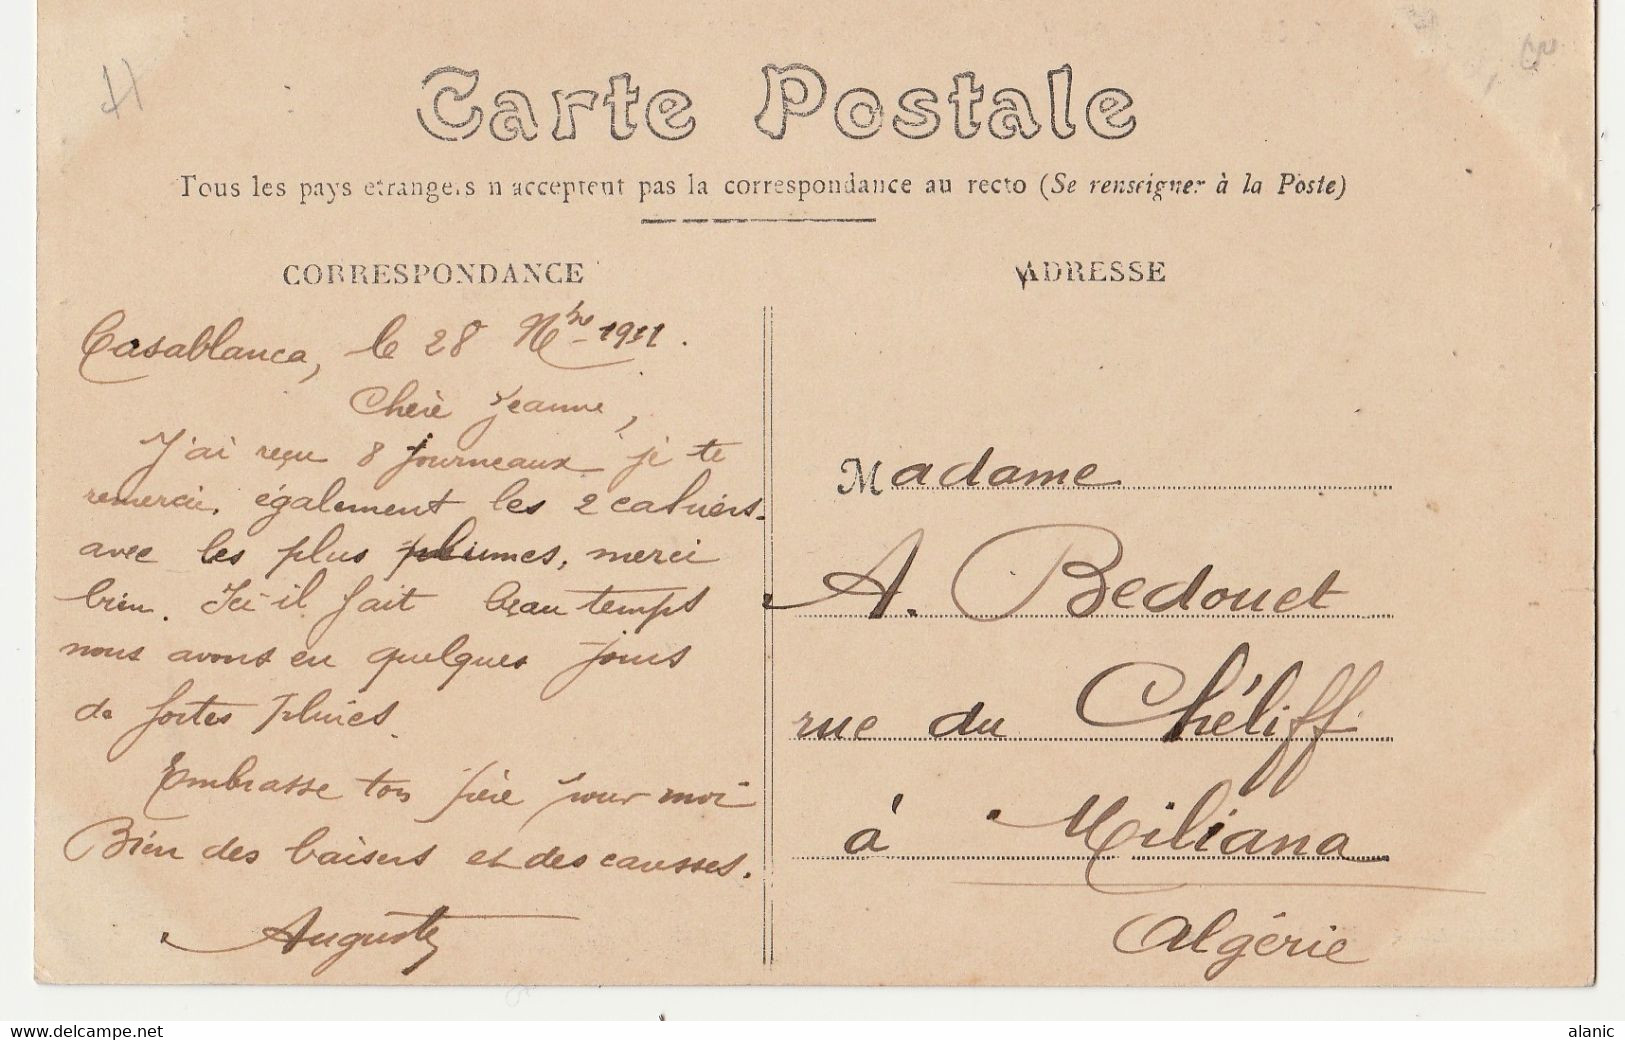 Carte Postale
Tous les pays étrangers n'acceptent pas la correspondance au recto (Se renseigner à la Poste)
CORRESPONDANCE
Casablanca, le 28 Nbre 1911.
Chère Jeanne,
J'ai reçu 8 journeaux je te
remercie, également les 2 cahiers
avec les plus plumes, merci
bien. Ici il fait beau temps
nous avons eu quelques jours
de fortes pluies.
Embrasse ton père pour moi
Bien des baisers et des caresses.
Auguste
ADRESSE
Madame
A. Bedouet
rue du Chéliff
à Miliana
Algérie
www.delcampe.net
alanic